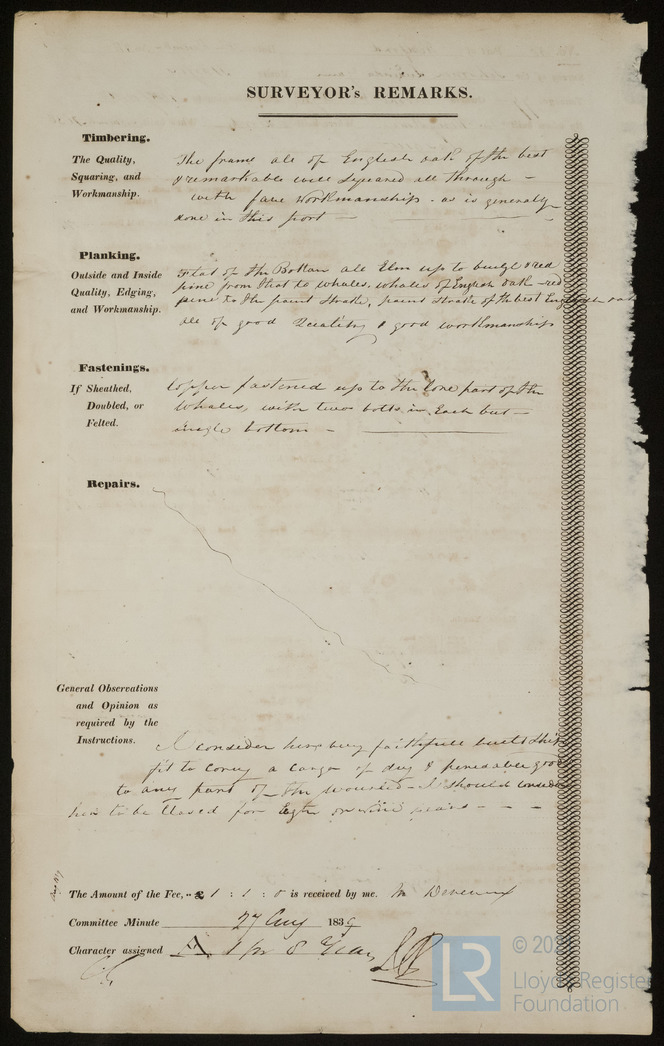 SURVEYOR's REMARKS.
Timbering.
The Quality,
Squaring, and
Workmanship.
The frame all of English oak of the best
& remarkable well squared all through –
with fare workmanship – as is generally
done in this port
Planking.
Outside and Inside
Quality, Edging,
and Workmanship.
Flat of the Bottam all Elm up to builge & red
pine from that to whales, whales of English oak – red
pine to the paint Strake, paint Strake of the best English oak
all of good Quality & good workmanship
Fastenings.
If Sheathed,
Doubled, or
Felted.
Copper fastened up to the lore part of the
Whales, with two bolts in Each but –
single bottom –
Repairs.
General Observations
and Opinion as
required by the
Instructions.
I consider her very faithfull built Ship
fit to convy a cargo of dry & perishable goo
to any part of the – I should consider
her to be Classed for or nine years – – –
The Amount of the Fee, £ 1 : 1 : 0 is received by me.
Committee Minute 27 Aug 1839
Character assigned A 1 for 8 Years
LR
© 202
Lloyd's Register
Foundation